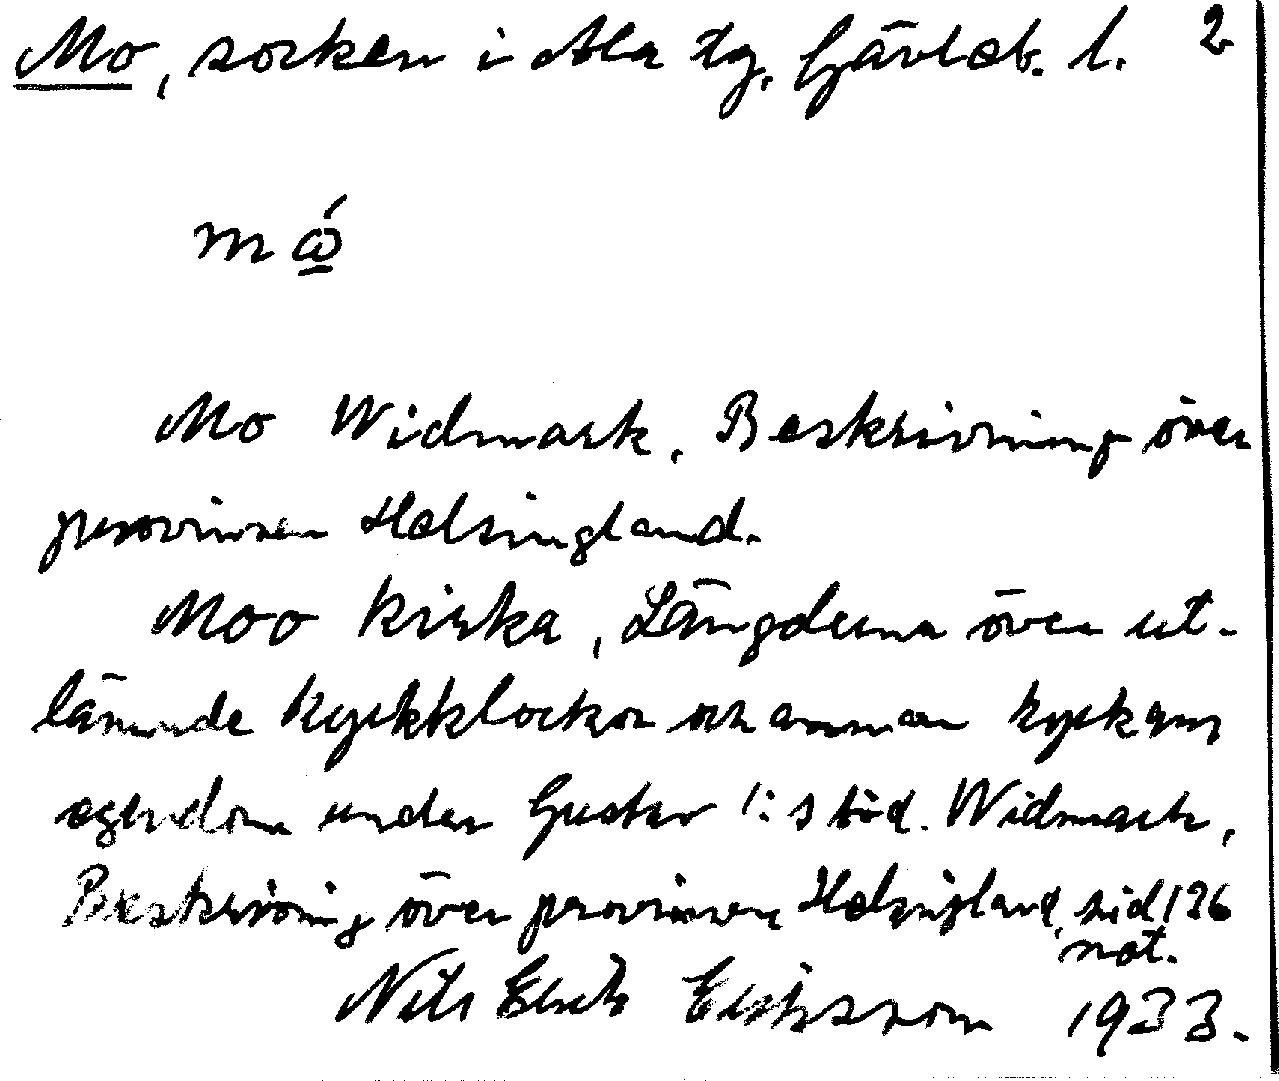 Mo, socken i Ala tg. Gävleb. l. 2
Mo Widmark, Beskrivning över
provinsen Helsingland.
Moo kirka, Längderna över ut-
lämnde kyrkklockor och annan kyrkans
egendom under Gustav I:s tid. Widmark,
Beskrivning över provinsen Helsingland, sid 126
not.
Nils Erik Eriksson 1933.